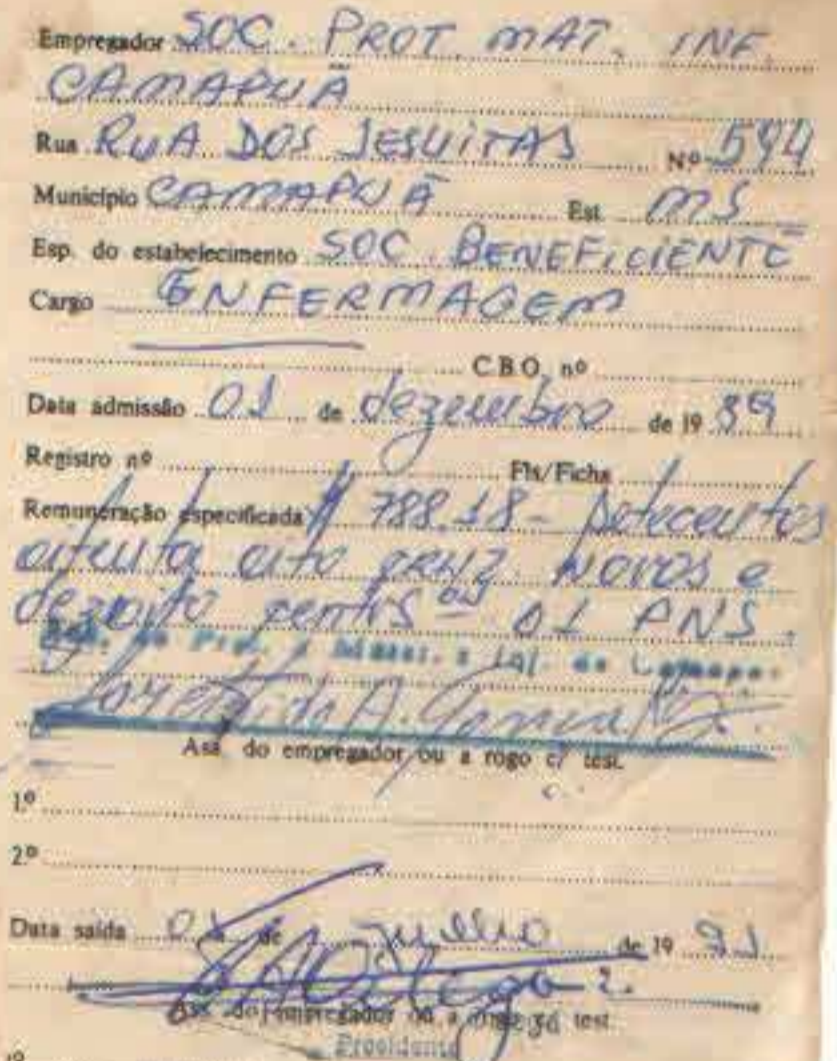 Empregador SOC. PROT. MAT. INF.
CAMAPUÃ
Rua RUA DOS JESUITAS Nº 594
Município CAMAPUÃ Est. MS
Esp. do estabelecimento SOC. BENEFICIENTE
Cargo ENFERMAGEM
C.B.O. nº
Data admissão 01 de dezembro de 19 89
Registro nº Fls/Ficha
Remuneração especificada 788.18 - setecentos
oitenta oito CRUZ. NOVOS e
dezoito centis 01 PNS.
Ass. do empregador ou a rogo c/ test.
1º
2º
Data saída 01 de julho de 19 91
Ass. do empregador ou a rogo c/ test.
Presidente
1º